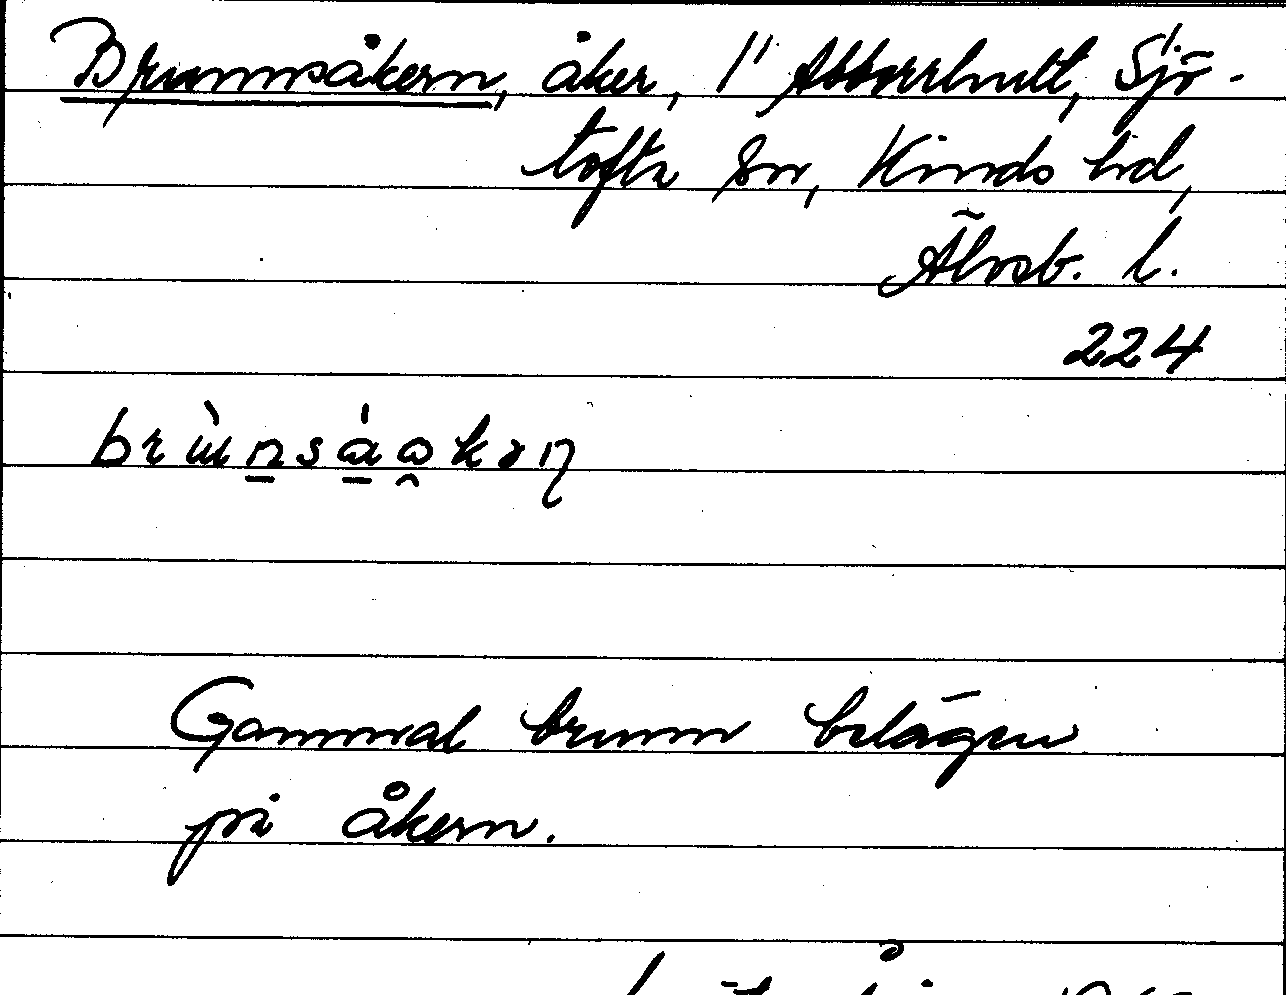 Brunnsåkern, åker, 1" Abborrhult, Sjö-
tofta sn, Kinds hd,
Älvsb. l.
224
Gammal brunn belägen
på åkern.